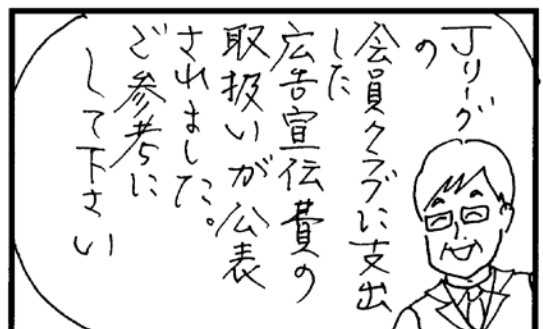 Jリーグ
の
会員クラブに支出
した
広告宣伝費の
取扱いが公表
されました。
ご参考に
して下さい